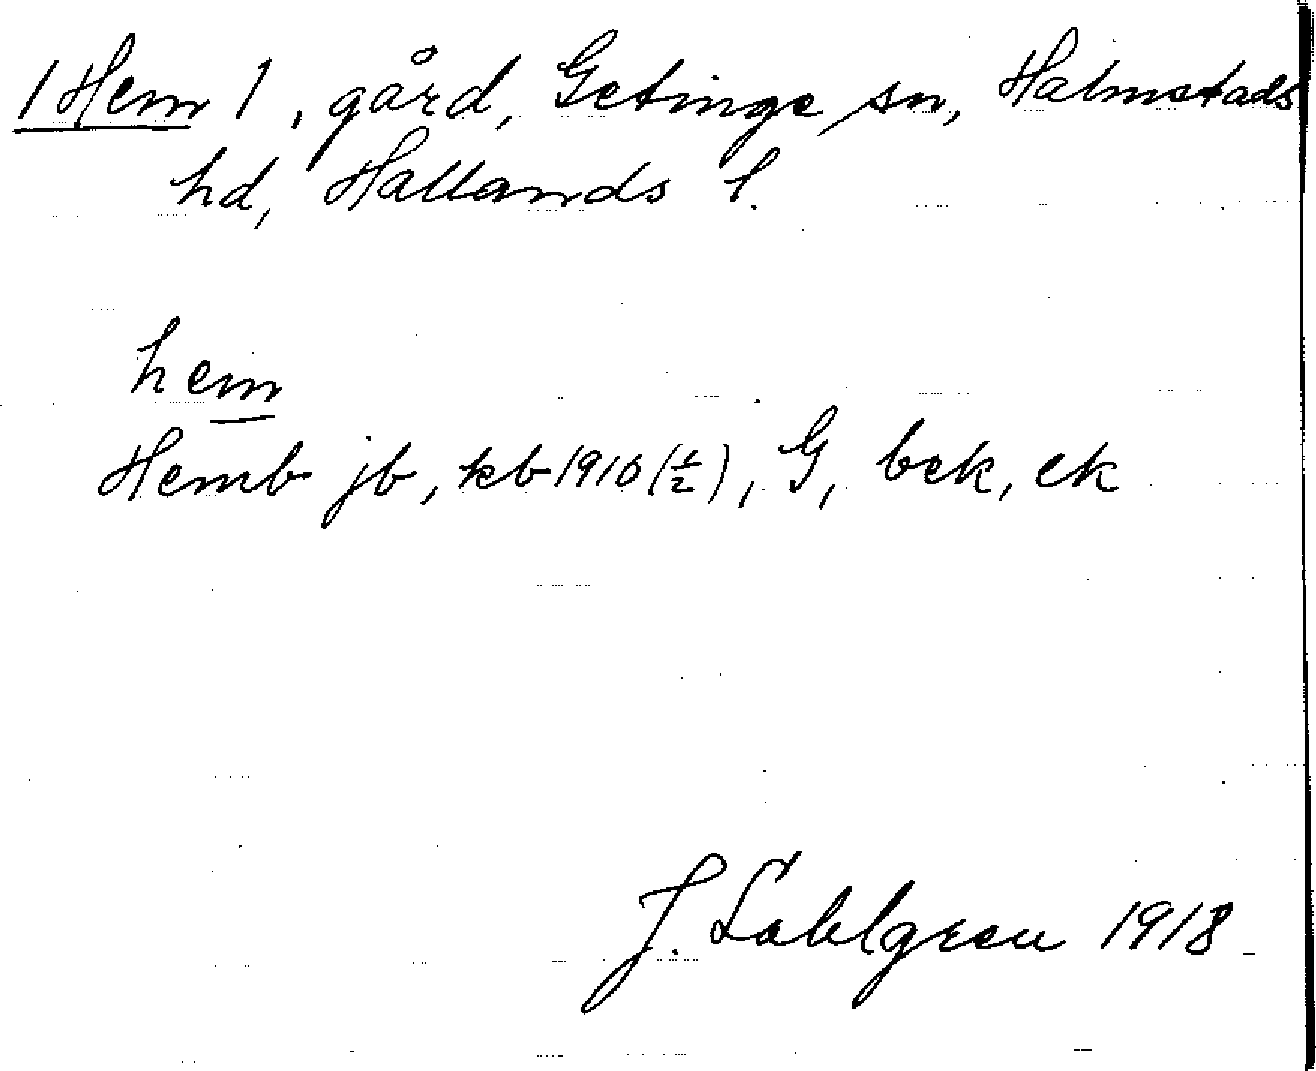 /Hem/, gård, Getinge sn, Halmstads
hd, Hallands l.
hem
Hemb jb, kb 1910 (1/2), G, bek, ek
J. Sahlgren 1918